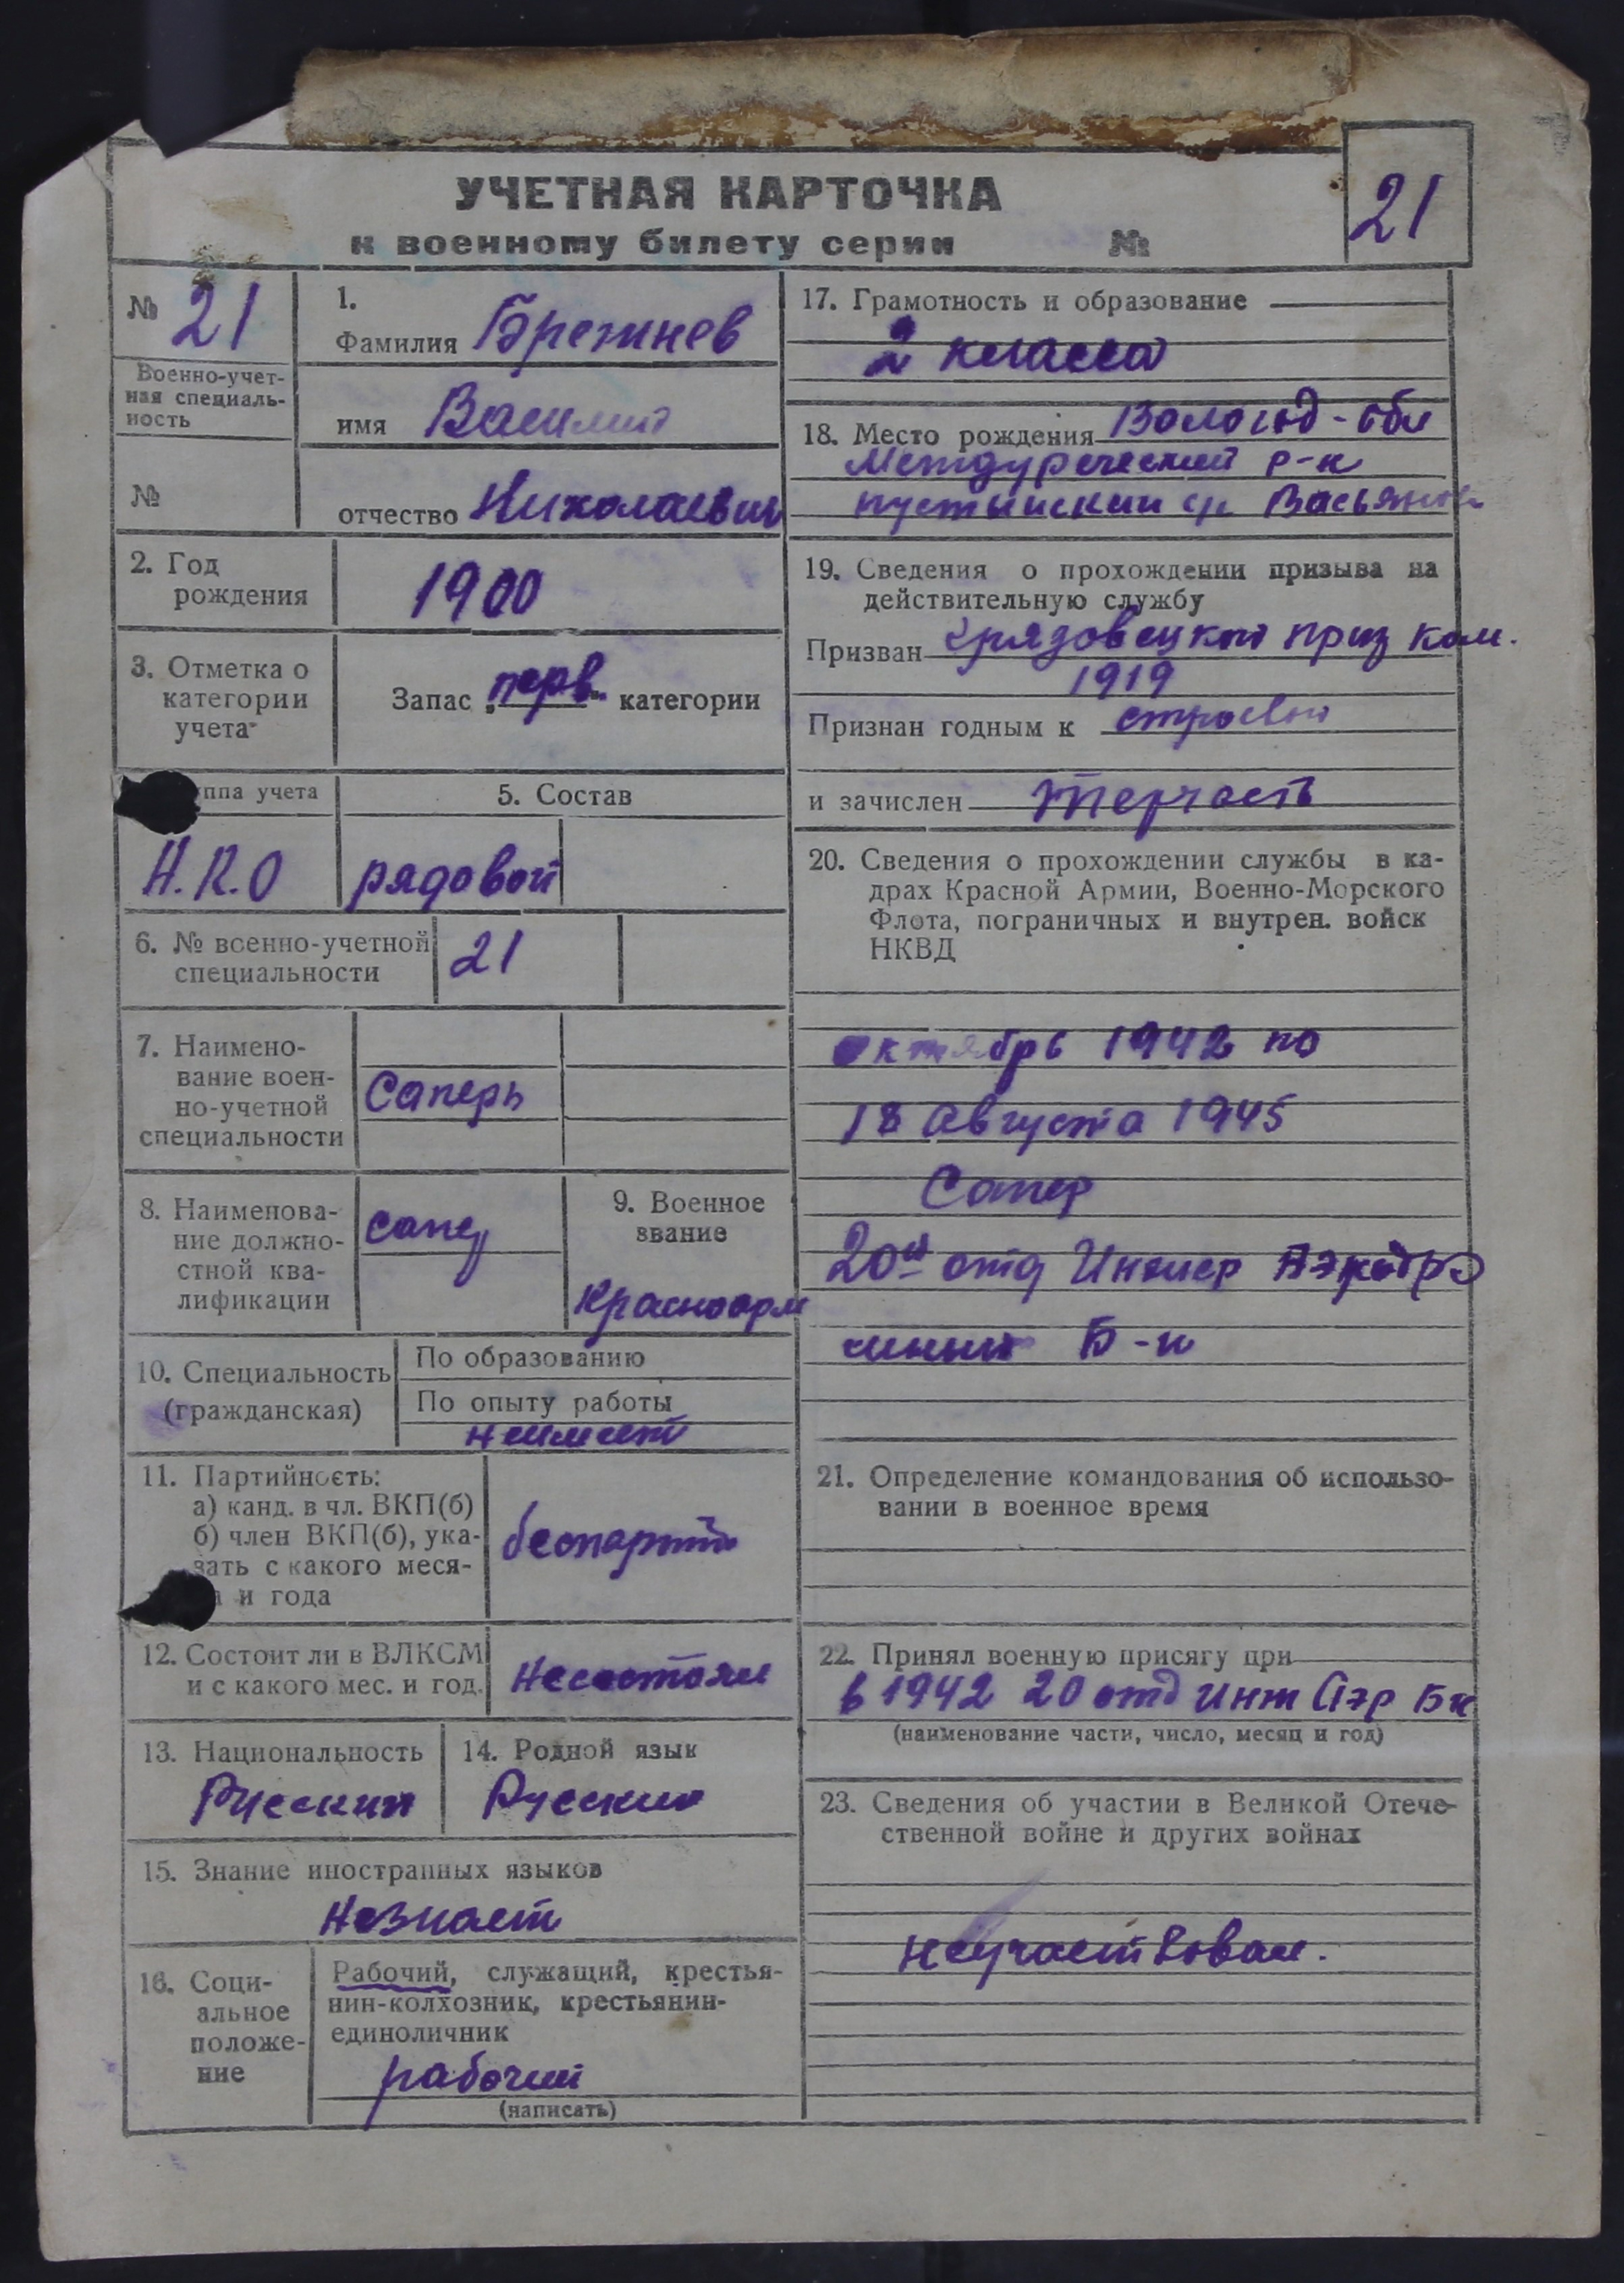 УЧЕТНАЯ КАРТОЧКА
к военному билету серии №
21
№ 21
Военно-учет-
ная специаль-
ность
№
1.
Фамилия Брежнев
имя Василий
отчество Николаевич
2. Год
рождения
1900
3. Отметка о
категории
учета
Запас „перв." категории
ппа учета
Н.К.О
5. Состав
рядовой
6. № военно-учетной
специальности
21
7. Наимено-
вание воен-
но-учетной
специальности
Саперъ
8. Наименова-
ние должно-
стной ква-
лификации
сапер
9. Военное
звание
Красноарм
10. Специальность
(гражданская)
По образованию
По опыту работы
неимеет
11. Партийность:
а) канд. в чл. ВКП(б)
б) член ВКП(б), ука-
зать с какого меся-
и года
беспартий
12. Состоит ли в ВЛКСМ
и с какого мес. и год.
несостоял
13. Национальность
Русский
14. Родной язык
Русский
15. Знание иностранных языков
Незнает
16. Соци-
альное
положе-
ние
Рабочий, служащий, крестья-
нин-колхозник, крестьянин-
единоличник
рабочий
(написать)
17. Грамотность и образование
2 класса
18. Место рождения Вологод-обл
Междуреческий р-н
пустынский с/с
19. Сведения о прохождении призыва на
действительную службу
Призван Грязовецкой приз ком.
1919
Признан годным к строевой
и зачислен терчасть
20. Сведения о прохождении службы в ка-
драх Красной Армии, Военно-Морского
Флота, пограничных и внутрен. войск
НКВД
октябрь 1942 по
18 августа 1945
Сапер
20й отд Инжнер Аэродро
мный Б-н
21. Определение командования об использо-
вании в военное время
22. Принял военную присягу при
в 1942 20 отд инж Аэр Бн
(наименование части, число, месяц и год)
23. Сведения об участии в Великой Отече-
ственной войне и других войнах
неучаствовал.